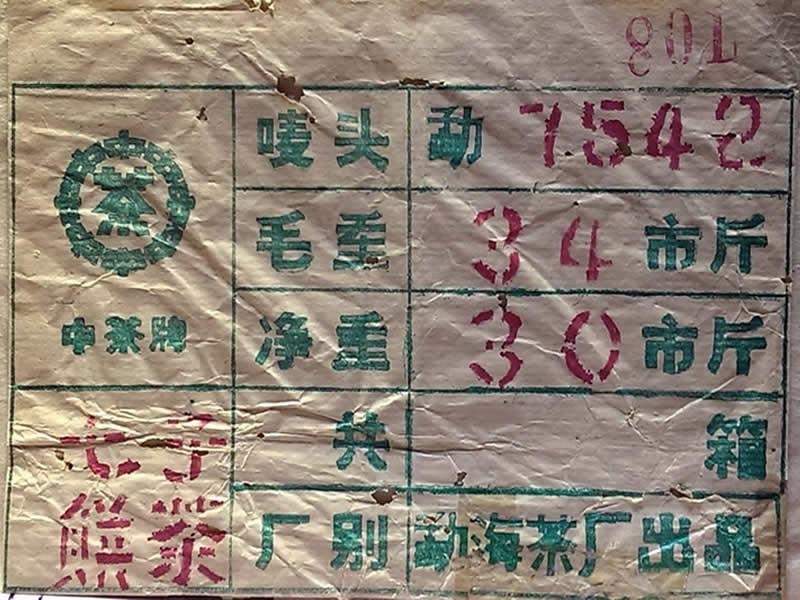 801
唛头 勐 7542
毛重 34 市斤
中茶牌 净重 30 市斤
七子 共 箱
餅茶 厂别 勐海茶厂出品
茶